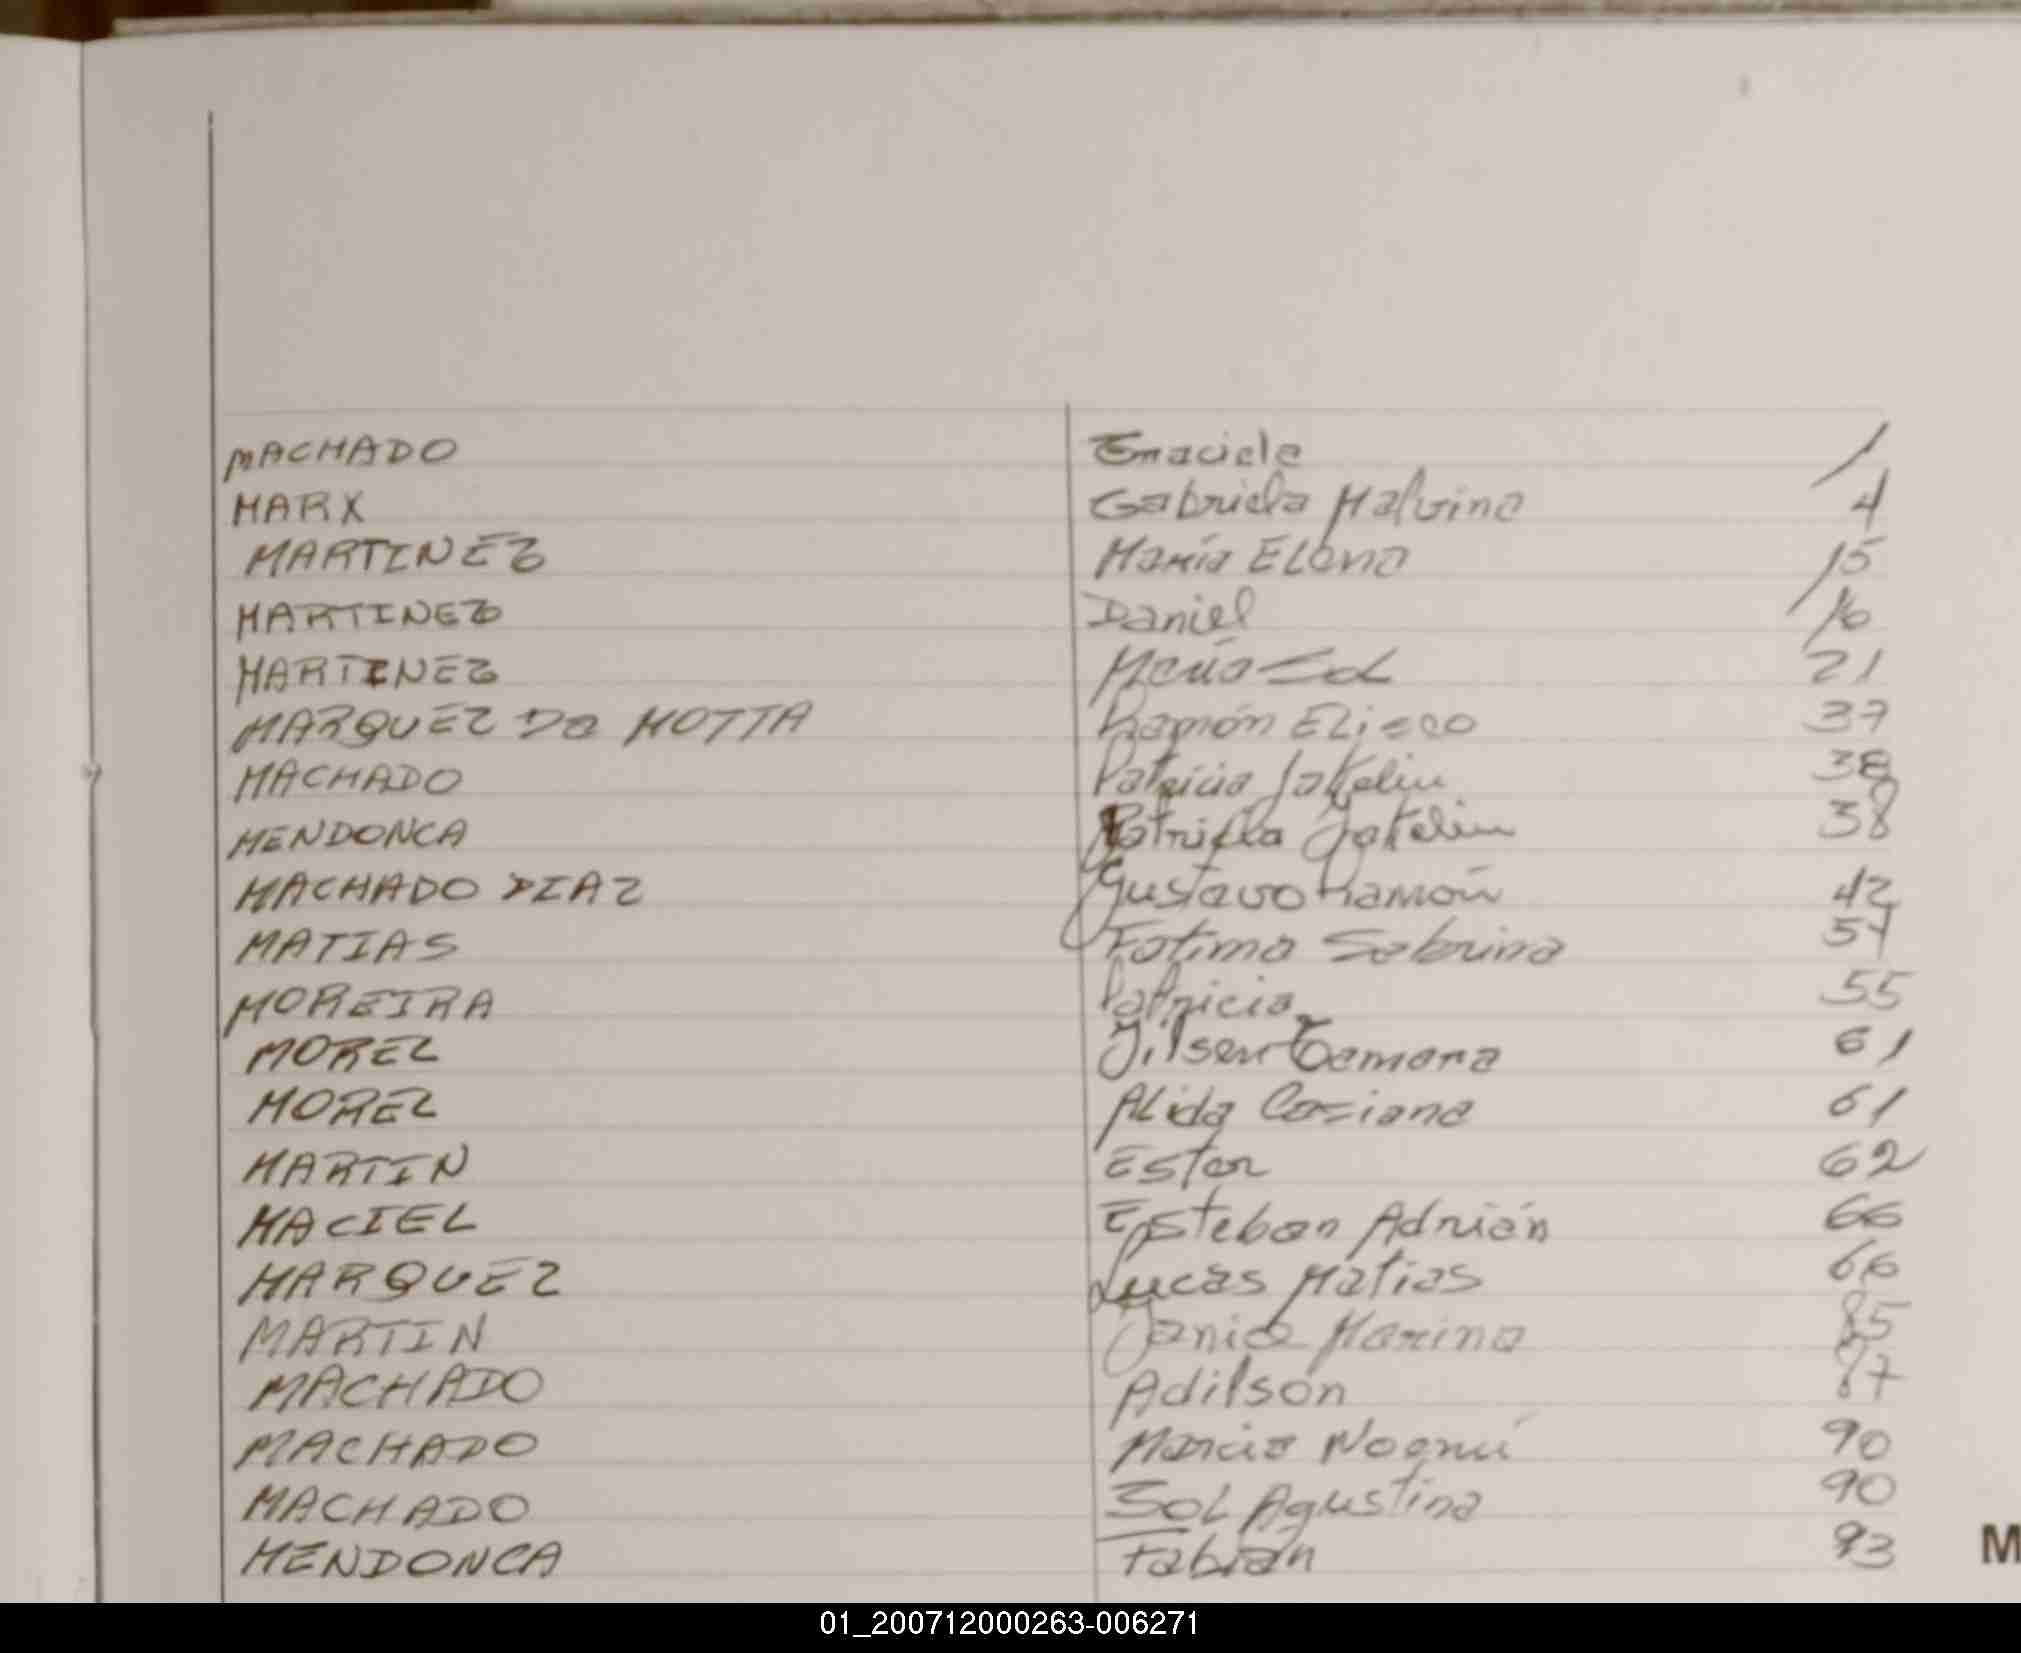 MACHADO Graciela 1
MARX Gabriela Malvina 4
MARTINEZ María Elena 15
MARTINEZ Daniel 16
MARTINEZ María Sol 21
MARQUEZ Da MOTTA Ramón Eliseo 37
MACHADO Patricia Jakelin 38
MENDONCA Patricia Jakelin 38
MACHADO DIAZ Gustavo Ramón 42
MATIAS Fatima Sabrina 54
MOREIRA Patricia 55
MOREL Tamara 61
MOREL Alida 61
MARTIN Ester 62
MACIEL Esteban Adrián 66
MARQUEZ Lucas Matias 66
MARTIN Marina 85
MACHADO Adilson 87
MACHADO Marcia Noemí 90
MACHADO Sol Agustina 90
MENDONCA Fabián 93
M
01_200712000263-006271